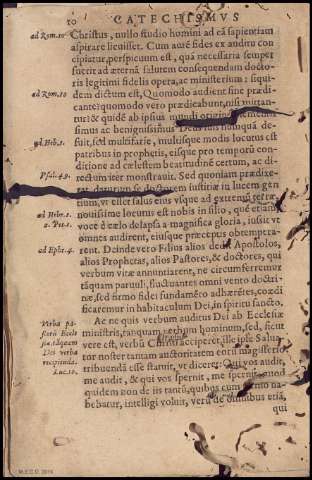 10
CATECHISMVS
ad Rom. 10
Christus, nullo studio homini ad eã sapientiam
aspirare licuisset. Cum aurē fides ex auditu con
cipiatur, perspicuum est, quã necessaria semper
fuerit ad æternã salutem consequendam docto-
ris legitimi fidelis opera, ac ministerium: siqui-
ad Rom. 10
dem dictum est, Quomodo audient sine prædi-
cante? quomodo vero prædicabunt, nisi mittan-
tur? & quidē ab ipsius mundi
simus ac benignissimus Deus suis nunquã de-
ad Heb. 1.
fuit, sed multifarie, multisque modis locutus est
patribus in prophetis, eisque pro temporũ con-
ditione ad cælestem beatitudinē certum, ac di-
Psal. 49.
rectum iter monstrauit. Sed quoniam prædixe-
rat, daturum se doctorem iustitiæ in lucem gen
tium, vt esset salus eius vsque ad extremũ terræ,
ad Heb. 1.
nouissime locutus est nobis in filio, quē etiam
2. Pet. 1.
voce è cælo delapsa à magnifica gloria, iussit vt
omnes audirent, eiusque præceptis obtempera-
ad Ephe. 4.
rent. Deinde vero Filius alios dedit Apostolos,
alios Prophetas, alios Pastores, & doctores, qui
verbum vitæ annuntiarent, ne circumferremur
tãquam paruuli, fluctuantes omni vento doctri-
næ, sed firmo fidei fundamēto adhærētes, coædi
ficaremur in habitaculum Dei, in spiritu sancto.
Verba pa-
storũ Eccle
siæ, tãquam
Dei verba
recipienda.
Luc. 10.
Ac ne quis verbum auditus Dei ab Ecclesiæ
ministris, tanquam verbum hominum, sed, sicut
vere est, verbũ Christi acciperet, ille ipse Salua-
tor noster tantam auctoritatem eorũ magisterio
tribuendã esse statuit, vt diceret: Qui vos audit,
me audit, & qui vos spernit, me spernit,
quidem non de iis tantũ, quibus cum
bebatur, intelligi voluit, verũ de omnibus etiã,
qui
M.E.C.D. 2016